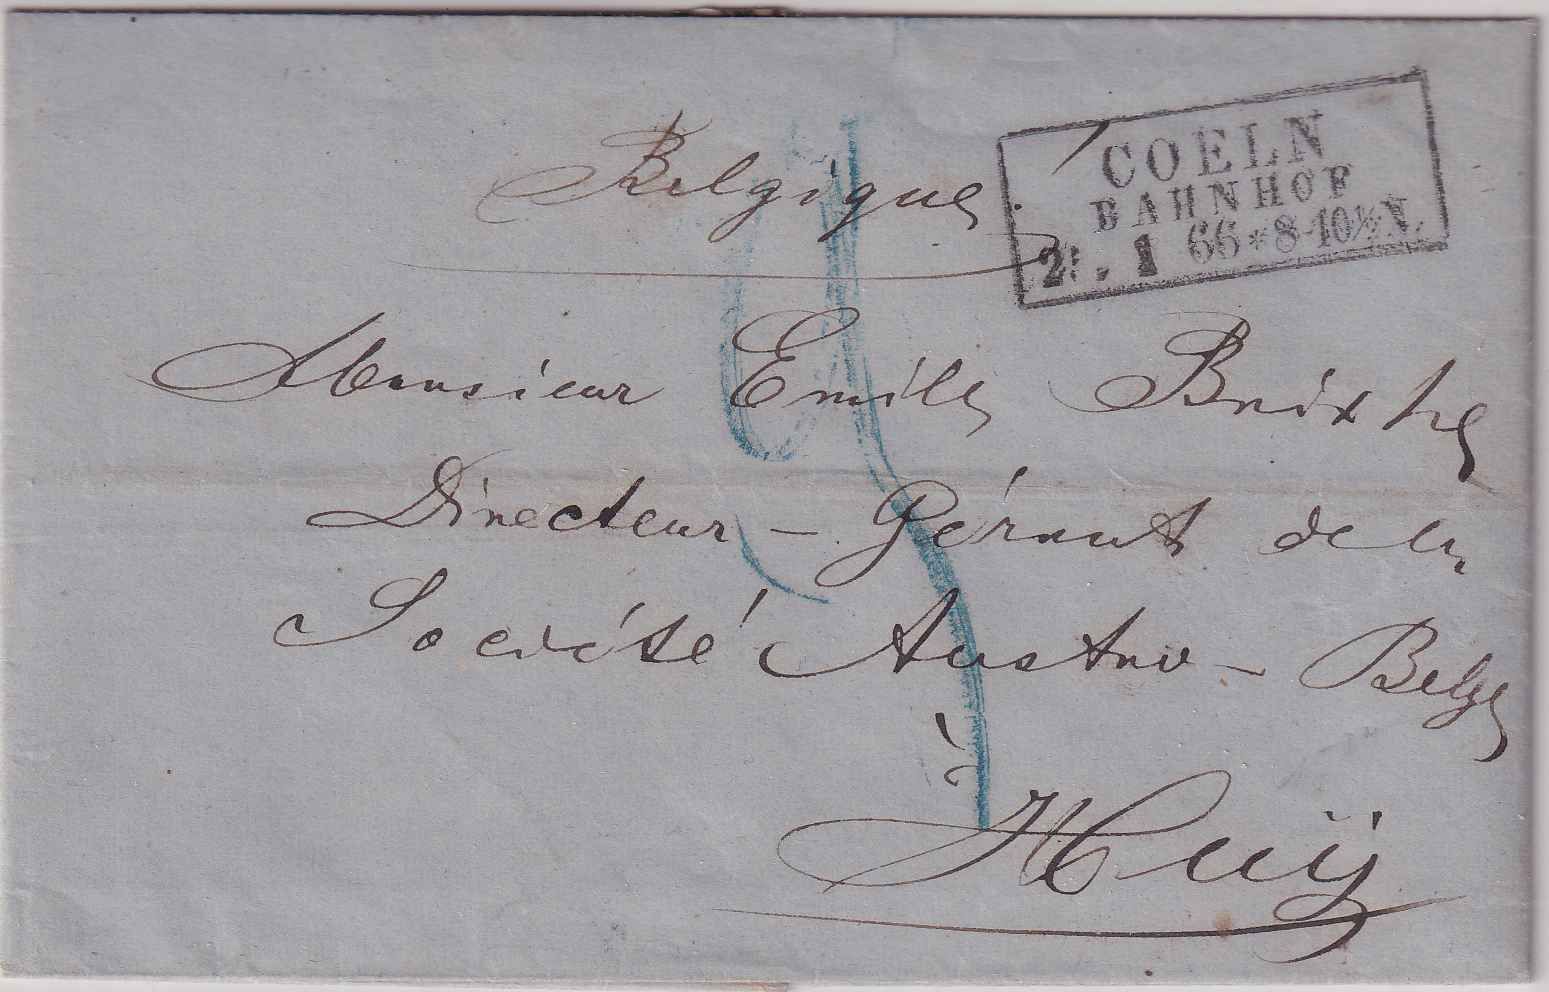 Belgique.
COELN
BAHNHOF
1 66 * 8-10½ N.
Monsieur Emile
Directeur - Gérant de la
Société Austro - Belge
à
Huÿ